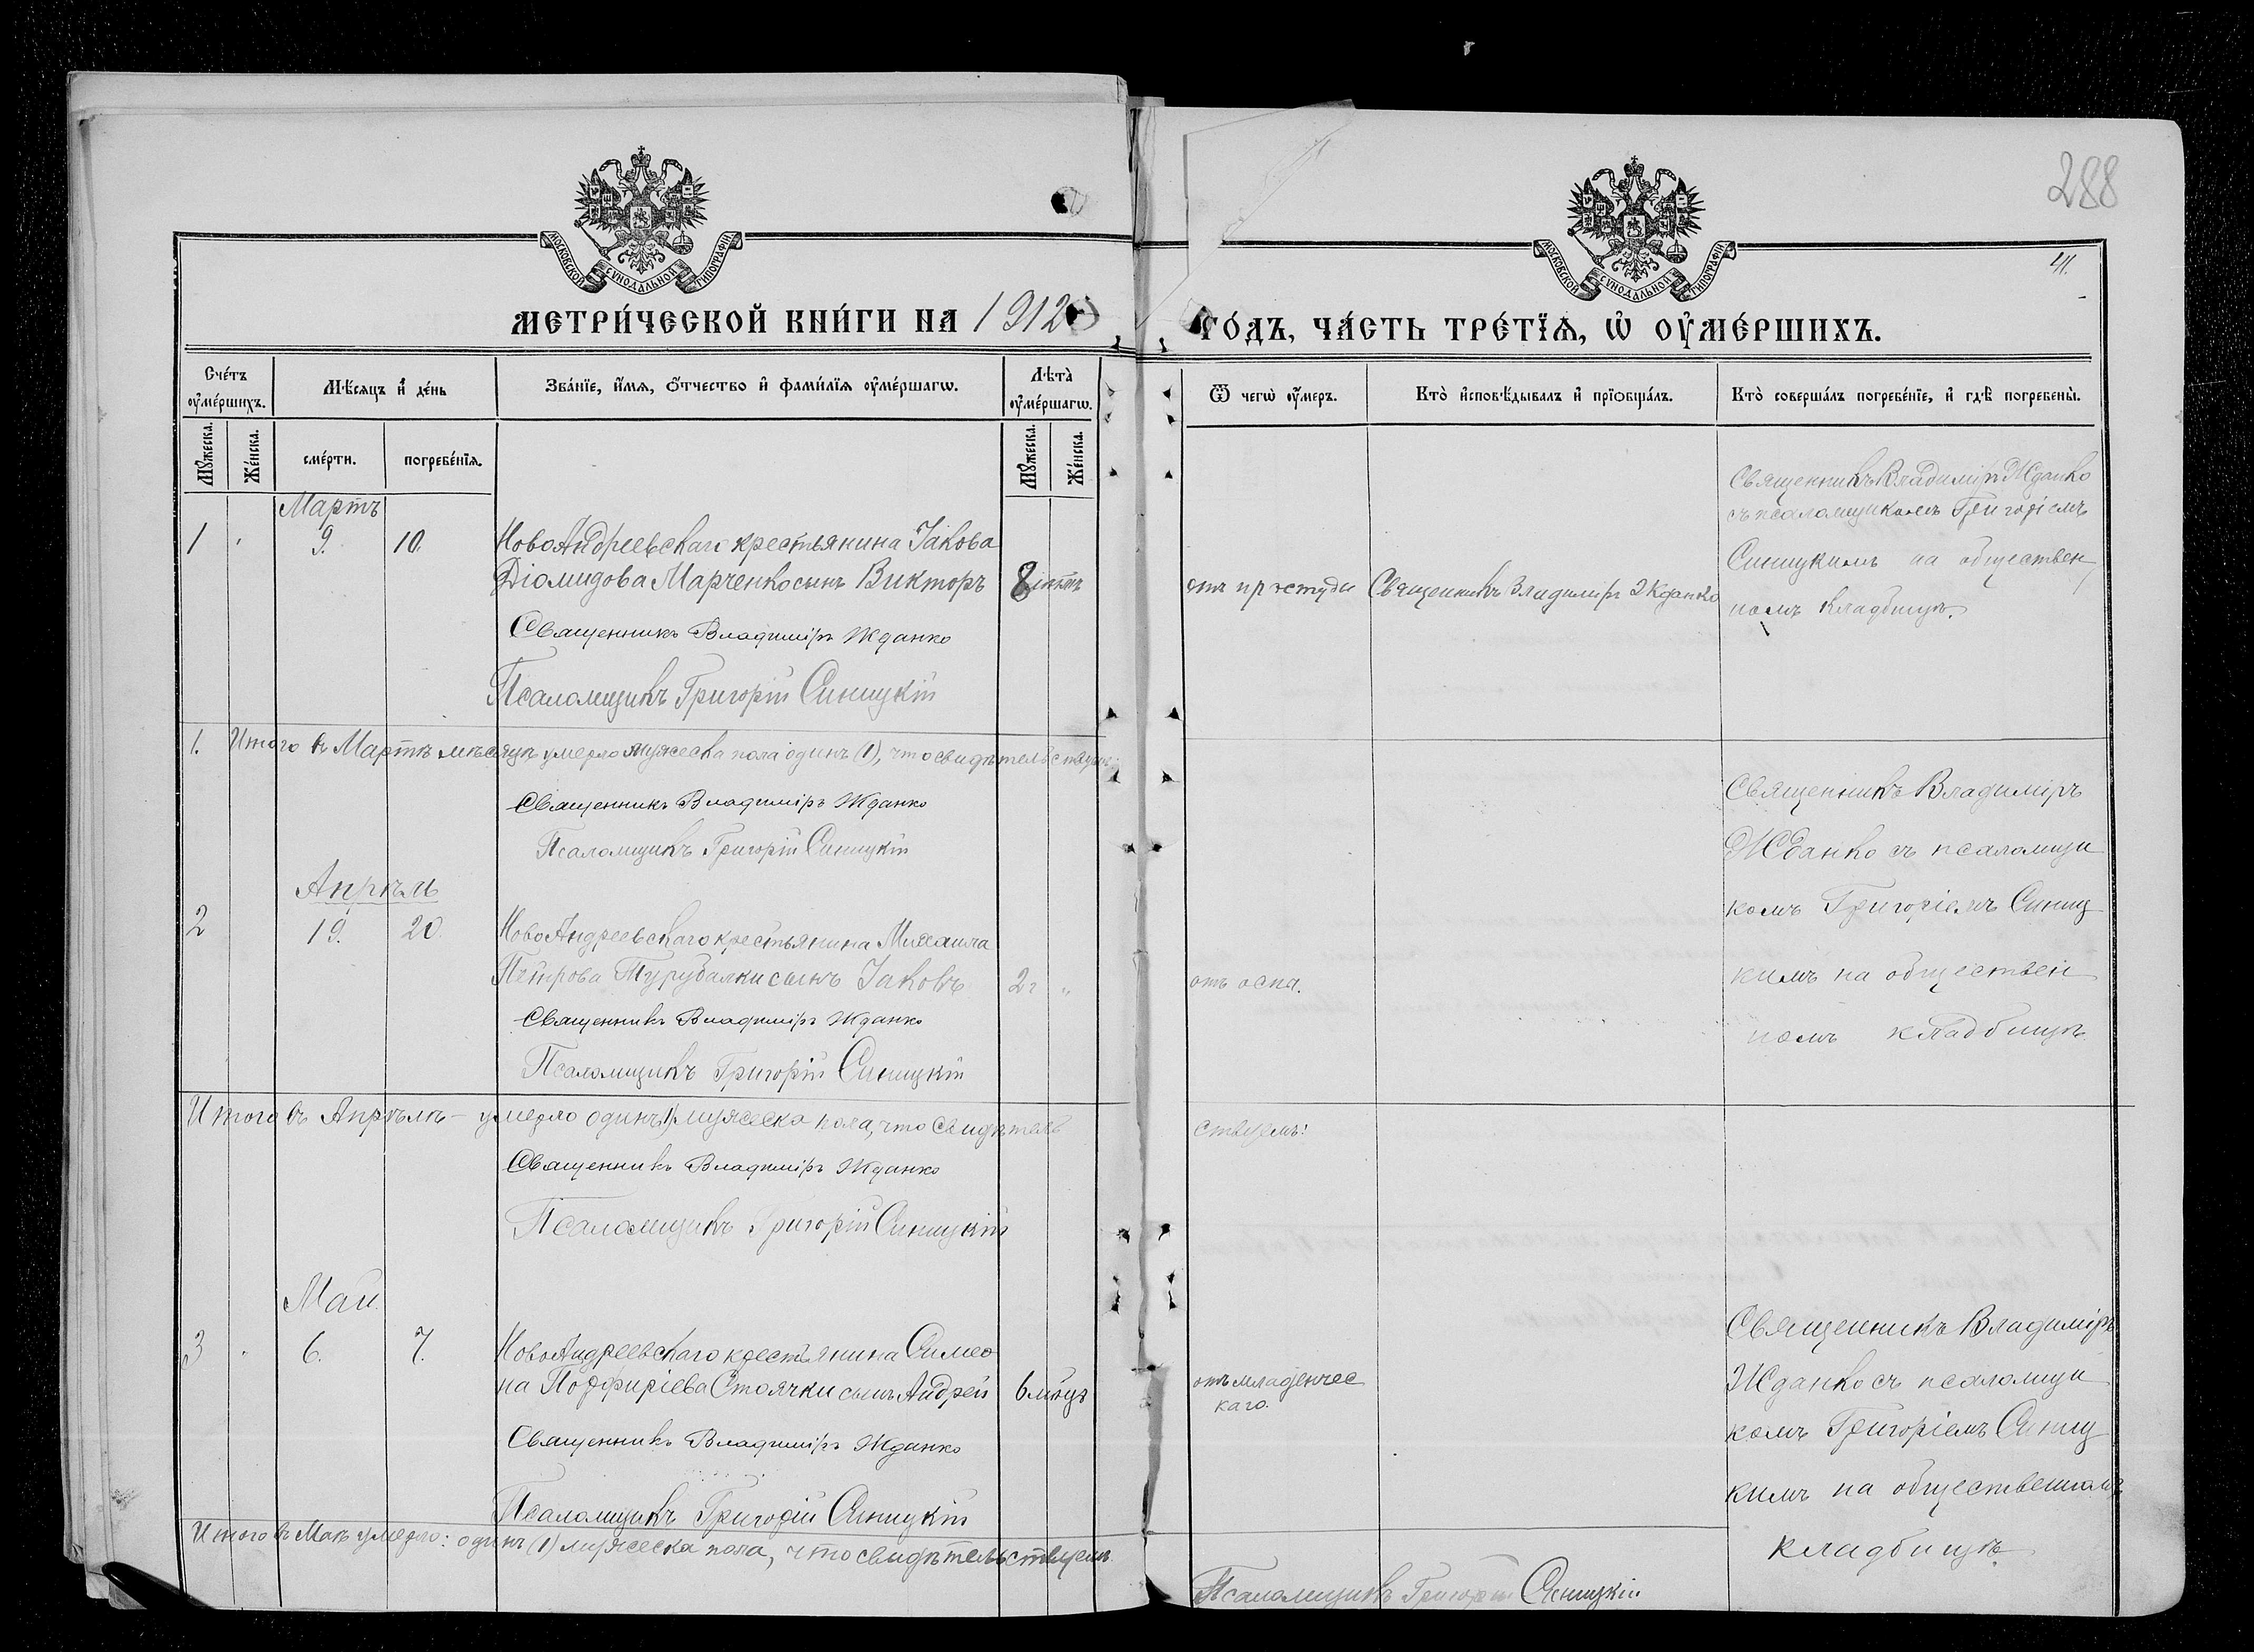 288
МОСКОВСКОЙ СѴНОДАЛЬНОЙ ТИПОГРАФІИ
МОСКОВСКОЙ СѴНОДАЛЬНОЙ ТИПОГРАФІИ
МЕТРИ́ЧЕСКОЙ КНИ́ГИ НА 1912
ГО́ДЪ, ЧА́СТЬ ТРЕ́ТЇѦ, Ѡ҆ ОУ҆МЕ́РШИХЪ.
Сче́тъ оу҆ме́ршихъ.
Мѣ́сяцъ и҆ де́нь
Зва́нїе, и҆́мѧ, ѻ҆́тчество и҆ фами́лїѧ оу҆ме́ршагѡ.
Лѣ́та̀ оу҆ме́ршагѡ.
Ѿ чегѡ̀ оу҆́меръ.
Кто̀ и҆сповѣ́дывалъ и҆ прїѡбща́лъ.
Кто̀ соверша́лъ погребе́нїе, и҆ гдѣ̀ погребены̀.
Мꙋ́жеска.
Же́нска.
сме́рти.
погребе́нїѧ.
Мꙋ́жеска.
Же́нска.
Мартъ
1 9. 10. НовоАндреевскаго крестьянина Іакова
Діомидова Марченко сынъ Викторъ 8 лѣтъ
Священникъ Владиміръ Жданко
Псаломщикъ Григорій Синицкій
отъ простуды
Священникъ Владиміръ Жданко
Священникъ Владиміръ Жданко
съ псаломщикомъ Григоріемъ
Синицкимъ на обществен
номъ кладбищѣ.
1. Итого въ Мартѣ мѣсяцѣ умерло мужеска пола одинъ (1), что свидѣтельствуемъ:
Священникъ Владиміръ Жданко
Псаломщикъ Григорій Синицкій
Апрѣль
2 19. 20. НовоАндреевскаго крестьянина Михаила
Петрова Турубалки сынъ Іаковъ 2 г „
Священникъ Владиміръ Жданко
Псаломщикъ Григорій Синицкій
отъ оспы.
Священникъ Владиміръ
Жданко съ псаломщи
комъ Григоріемъ Синиц
кимъ на обществен
номъ кладбищѣ
Итого въ Апрѣлѣ – умерло одинъ (1) мужеска пола, что свидѣтель
ствуемъ:
Священникъ Владиміръ Жданко
Псаломщикъ Григорій Синицкій
Май.
3 6. 7. НовоАндреевскаго крестьянина Симео
на Порфиріева Стоячки сынъ Андрей 6 мѣсяц
Священникъ Владиміръ Жданко
Псаломщикъ Григорій Синицкій
отъ младенчес
каго.
Священникъ Владиміръ
Жданко съ псаломщи
комъ Григоріемъ Синиц
кимъ на общественномъ
кладбищѣ.
Итого въ Маѣ умерло: одинъ (1) мужеска пола, что свидѣтельствуемъ
Псаломщикъ Григорій Синицкій